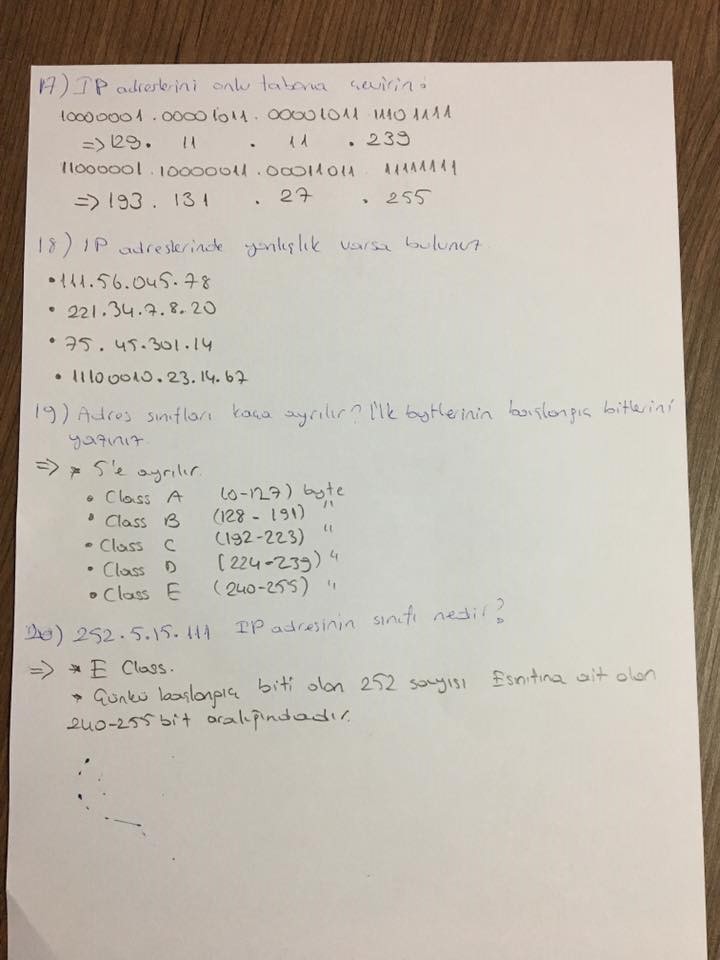 17) IP adreslerini onlu tabana çevirin:
10000001.00001011.00001011.11101111
=> 129. 11 . 11 . 239
11000001.10000011.00011011.11111111
=> 193. 131 . 27 . 255
18) IP adreslerinde yanlışlık varsa bulunuz
• 111.56.045.78
• 221.34.7.8.20
• 75.45.301.14
• 11100010.23.14.67
19) Adres sınıfları kaça ayrılır? İlk baytlerinin başlangıç bitlerini
yazınız.
=> * 5'e ayrılır.
• Class A (0-127) byte
• Class B (128-191) "
• Class C (192-223) "
• Class D [224-239) "
• Class E (240-255) "
20) 252.5.15.111 IP adresinin sınıfı nedir?
=> * E Class.
* Çünkü başlangıç biti olan 252 sayısı E sınıfına ait olan
240-255 bit aralığındadır.